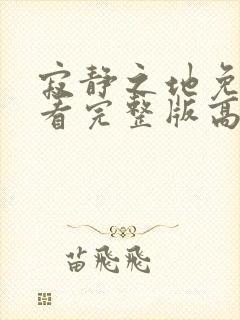 寂静之地免
看完整版高
苗飛飛